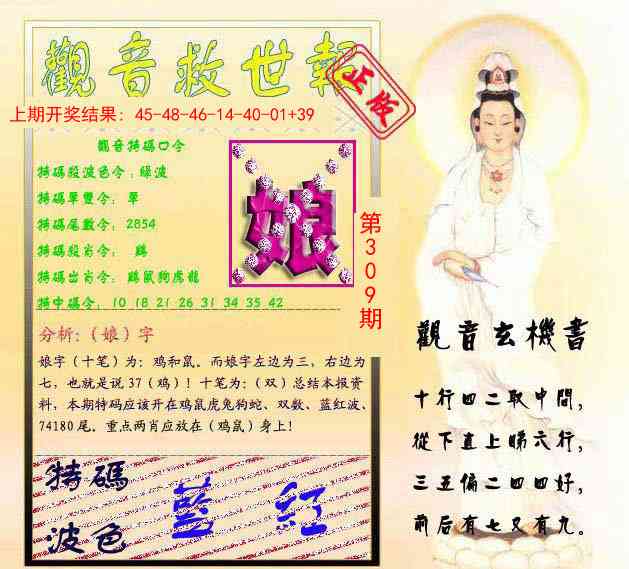 觀音救世報
正版
上期开奖结果：45-48-46-14-40-01+39
觀音特碼口令
特碼殺波色令：綠波
特碼單雙令：單
特碼尾數令：2854
特碼殺肖令：鷄
特碼出肖令：鷄鼠狗虎龍
特中碼令：10 18 21 26 31 34 35 42
娘
第309期
分析：（娘）字
娘字（十笔）为：鸡和鼠。而娘字左边为三，右边为
七，也就是说37（鸡）！十笔为：（双）总结本报资
料，本期特码应该开在鸡鼠虎兔狗蛇、双数、蓝红波、
74180尾。重点两肖应放在（鸡鼠）身上！
特碼
波色
藍 紅
觀音玄機書
十行四二取中間，
從下直上睇六行，
三五偏二四四好，
前后有七又有九。